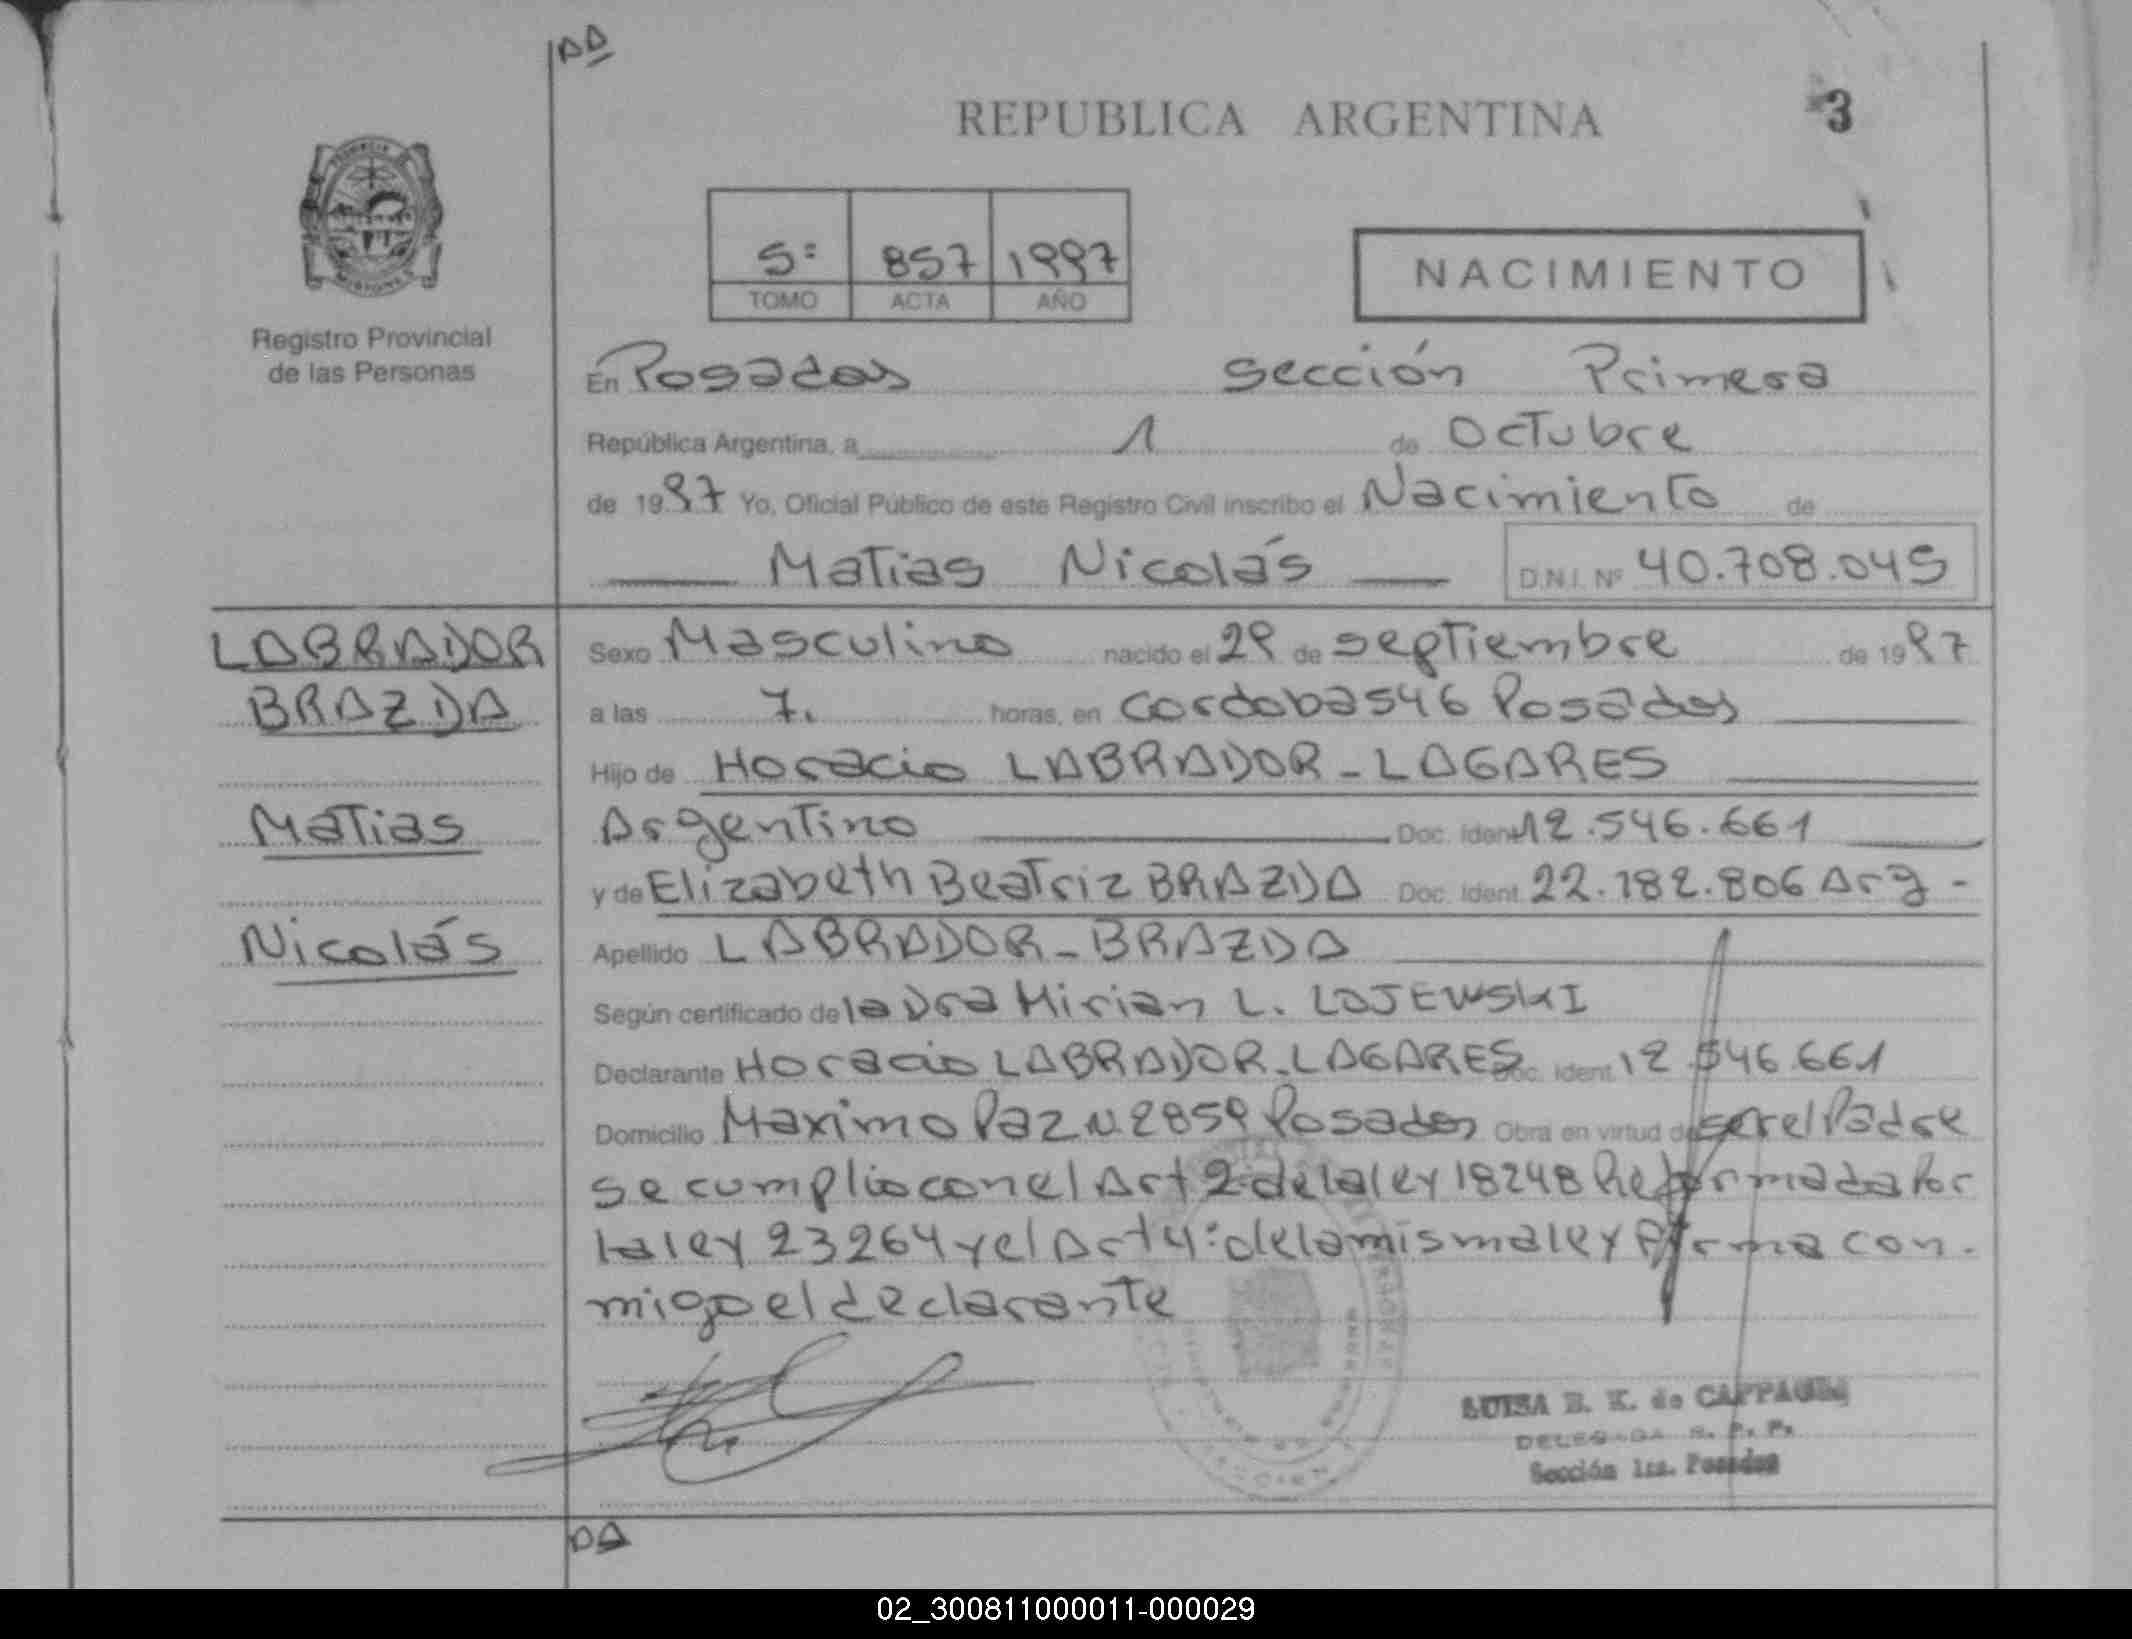 DA
REPUBLICA ARGENTINA
3
5º 857 1997
TOMO ACTA AÑO
NACIMIENTO
PROVINCIA DE
MISIONES
Registro Provincial
de las Personas
En Posadas sección Primera
República Argentina, a 1 de Octubre
de 1997 Yo, Oficial Público de este Registro Civil inscribo el Nacimiento de
Matias Nicolás D.N.I. Nº 40.708.045
LABRADOR
BRAZDA
Matias
Nicolás
Sexo Masculino nacido el 29 de septiembre de 1997
a las 7. horas, en Cordoba 546 Posadas
Hijo de Horacio LABRADOR - LAGARES
Argentino Doc. Ident. 12.546.661
y de Elizabeth Beatriz BRAZDA Doc. Ident. 22.182.806 Arg -
Apellido LABRADOR - BRAZDA
Según certificado de la Dra Mirian L. LOJEWSKI
Declarante Horacio LABRADOR - LAGARES Doc. Ident. 12.546.661
Domicilio Maximo Paz N. 2859 Posadas Obra en virtud de ser el Padre
se cumplio con el Art 2 de la ley 18248 Reformada Por
la ley 23264 y el Art 4º de la misma ley firma con-
migo el declarante
LUISA B. K. de
DELEGADA R. P. P.
Sección 1ra. Posadas
DA
02_300811000011-000029